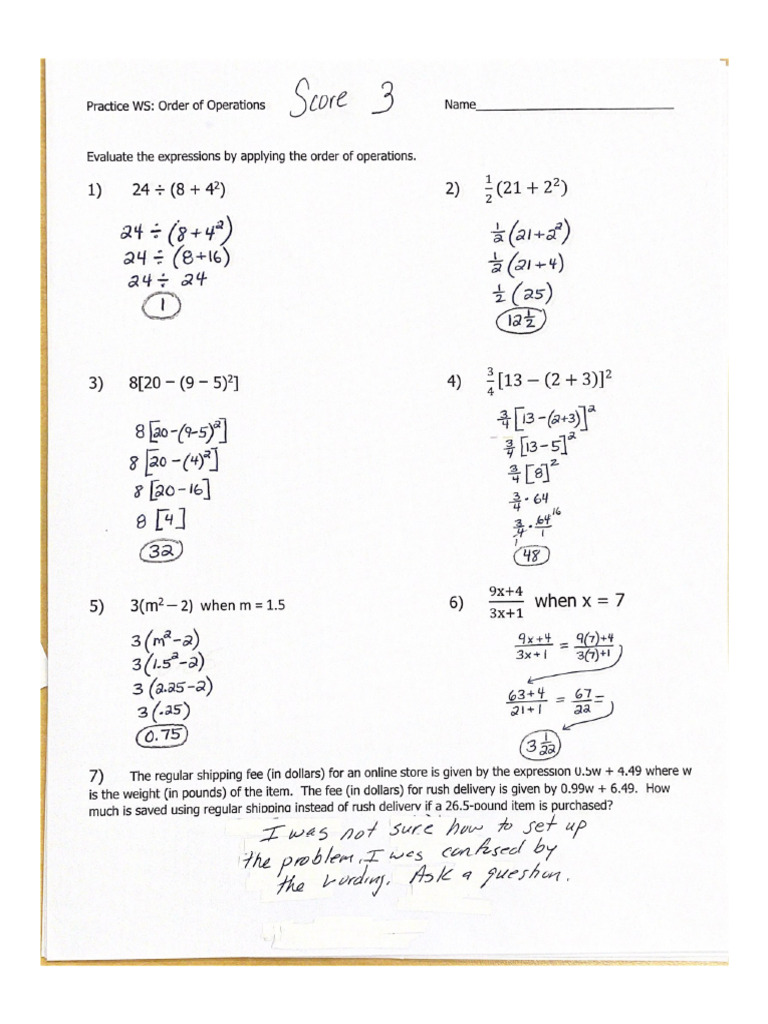 Practice WS: Order of Operations Score 3 Name
Evaluate the expressions by applying the order of operations.
1) 24 ÷ (8 + 4²) 2) 1/2 (21 + 2²)
24 ÷ (8 + 4²)
24 ÷ (8+16)
24 ÷ 24
1
1/2 (21+2²)
1/2 (21+4)
1/2 (25)
12 1/2
3) 8[20 − (9 − 5)²] 4) 3/4 [13 − (2 + 3)]²
8[20-(9-5)²]
8[20-(4)²]
8[20-16]
8[4]
32
3/4 [13-(2+3)]²
3/4 [13-5]²
3/4 [8]²
3/4 · 64
3/4 · 64/1 16
1
48
5) 3(m² − 2) when m = 1.5 6) 9x+4/3x+1 when x = 7
3(m²-2)
3(1.5²-2)
3(2.25-2)
3(.25)
0.75
9x+4/3x+1 = 9(7)+4/3(7)+1
63+4/21+1 = 67/22 =
3 1/22
7) The regular shipping fee (in dollars) for an online store is given by the expression 0.5w + 4.49 where w
is the weight (in pounds) of the item. The fee (in dollars) for rush delivery is given by 0.99w + 6.49. How
much is saved using regular shipping instead of rush delivery if a 26.5-pound item is purchased?
I was not sure how to set up
the problem. I was confused by
the wording. Ask a question.